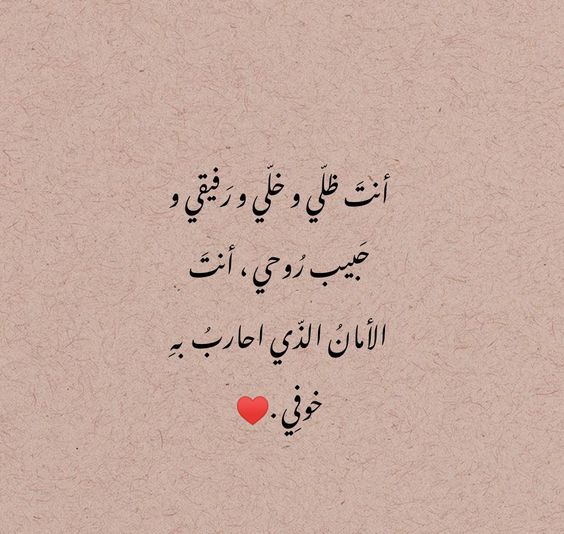 أنتَ ظلّي و خلّي و رَفيقي و
حَبيب رُوحي ، أنتَ
الأمانُ الذّي احاربُ بهِ
خوفِي .♥️